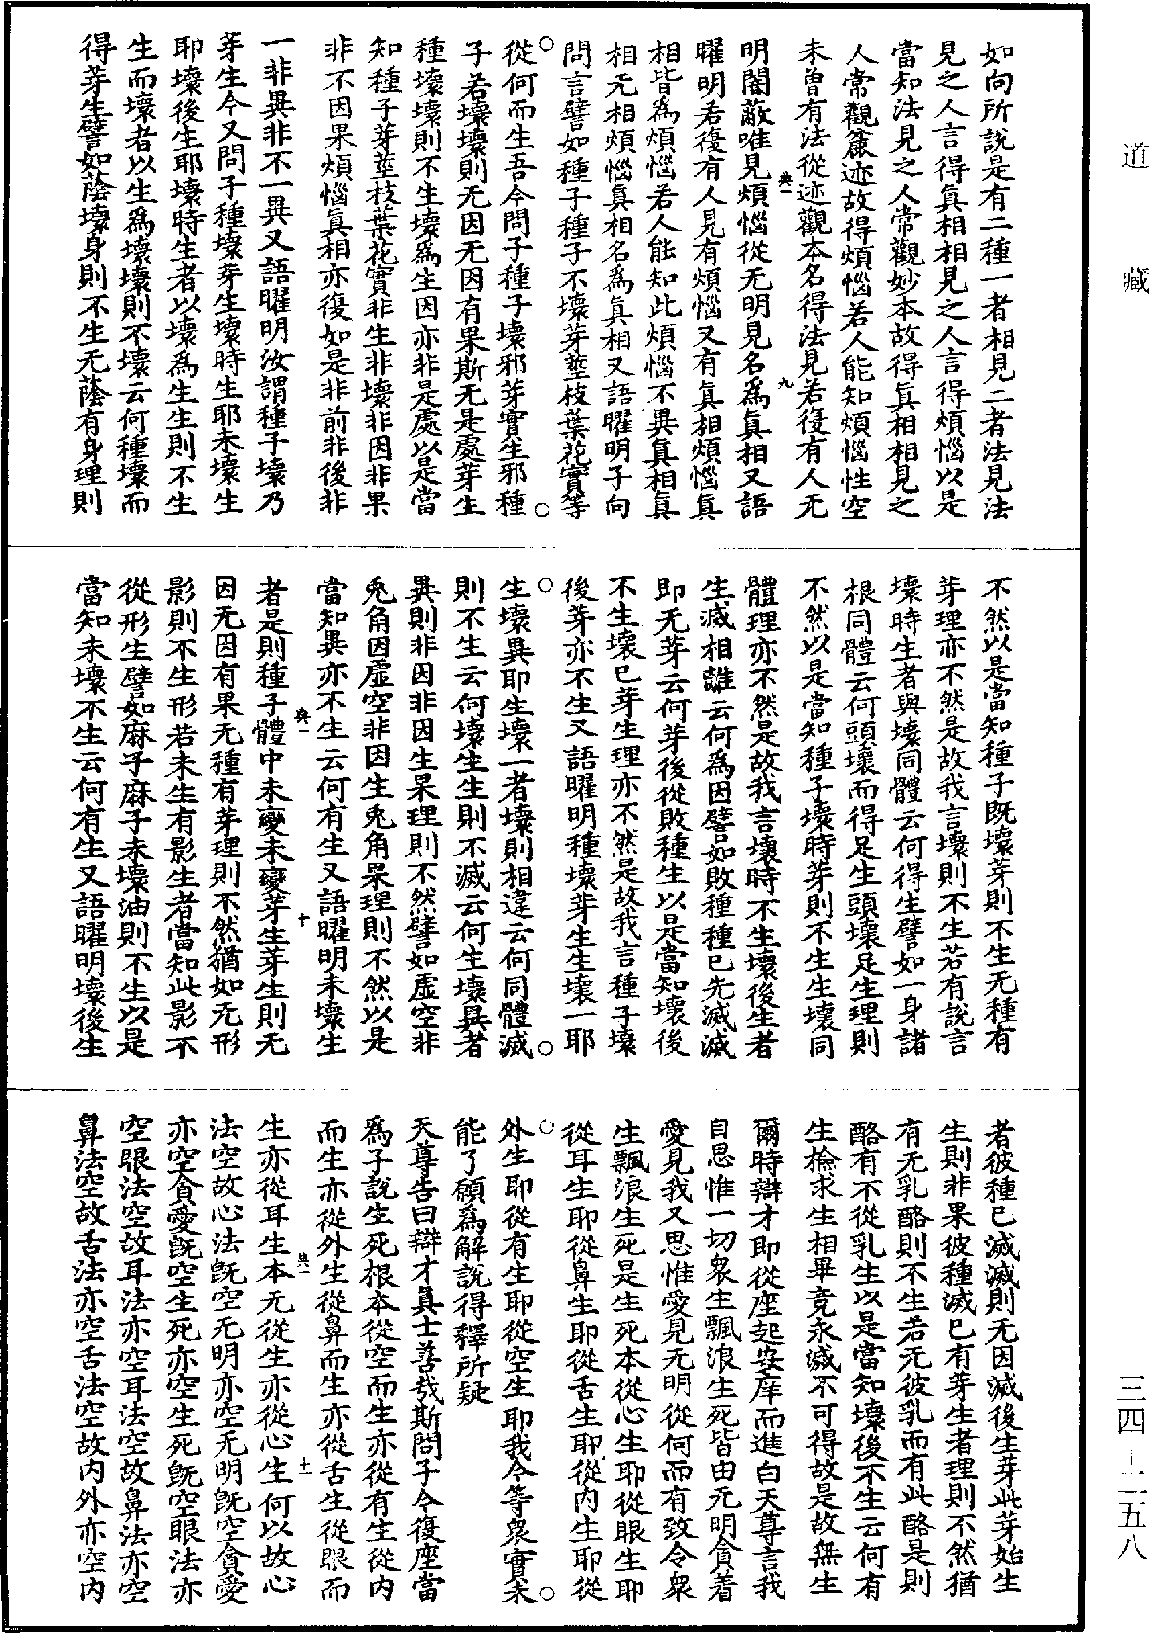 道藏
如向所說是有二種一者相見二者法見法
見之人言得真相相見之人言得煩惱以是
當知法見之人常觀妙本故得真相相見之
人常觀麁迹故得煩惱若人能知煩惱性空
未曾有法從迹觀本名得法見若復有人无
明闇蔽唯見煩惱從无明見名為真相又語
曜明若復有人見有煩惱又有真相煩惱真
相皆為煩惱若人能知此煩惱不異真相真
相无相煩惱真相名為真相又語曜明子向
問言譬如種子種子不壞芽莖枝葉花實等
從何而生吾今問子種子壞邪芽實生邪種
子若壞壞則无因无因有果斯无是處芽生
種壞壞則不生壞為生因亦非是處以是當
知種子芽莖枝葉花實非生非壞非因非果
非不因果煩惱真相亦復如是非前非後非
一非異非不一異又語曜明汝謂種子壞乃
芽生今又問子種壞芽生壞時生耶未壞生
耶壞後生耶壞時生者以壞為生生則不生
生而壞者以生為壞壞則不壞云何種壞而
得芽生譬如蔭壞身則不生无蔭有身理則
不然以是當知種子既壞芽則不生无種有
芽理亦不然是故我言壞則不生若有說言
壞時生者與壞同體云何得生譬如一身諸
根同體云何頭壞而得足生頭壞足生理則
不然以是當知種子壞時芽則不生生壞同
體理亦不然是故我言壞時不生壞後生者
生滅相離云何為因譬如敗種種已先滅滅
即无芽云何芽後從敗種生以是當知壞後
不生壞已芽生理亦不然是故我言種子壞
後芽亦不生又語曜明種壞芽生生壞一耶
生壞異耶生壞一者壞則相違云何同體滅
則不生云何壞生生則不滅云何生壞異者
異則非因非因生果理則不然譬如虛空非
兎角因虛空非因生兎角果理則不然以是
當知異亦不生云何有生又語曜明未壞生
者是則種子體中未變未變芽生芽生則无
因无因有果无種有芽理則不然猶如无形
影則不生形若未生有影生者當知此影不
從形生譬如麻子麻子未壞油則不生以是
當知未壞不生云何有生又語曜明壞後生
者彼種已滅滅則无因滅後生芽此芽始生
生則非果彼種滅已有芽生者理則不然猶
有无乳酪則不生若无彼乳而有此酪是則
酪有不從乳生以是當知壞後不生云何有
生撿求生相畢竟永滅不可得故是故無生
爾時辯才即從座起安庠而進白天尊言我
自思惟一切衆生飄浪生死皆由无明貪著
愛見我又思惟愛見无明從何而有致令衆
生飄浪生死是生死本從心生耶從眼生耶
從耳生耶從鼻生耶從舌生耶從內生耶從
外生耶從有生耶從空生耶我今等衆實未
能了願為解說得釋所疑
天尊告曰辯才真士善哉斯問子今復座當
為子說生死根本從空而生亦從有生從內
而生亦從外生從鼻而生亦從舌生從眼而
生亦從耳生本无從生亦從心生何以故心
法空故心法既空无明亦空无明既空貪愛
亦空貪愛既空生死亦空生死既空眼法亦
空眼法空故耳法亦空耳法空故鼻法亦空
鼻法空故舌法亦空舌法空故內外亦空內
三四-二五八